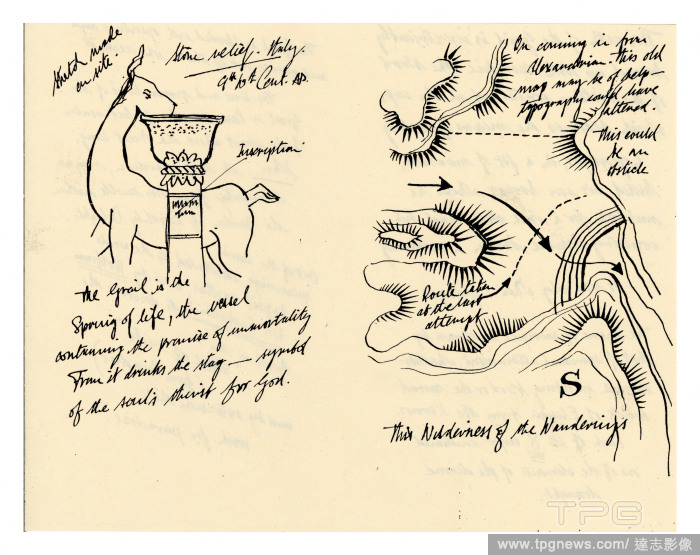 Sketch made
on site.
Stone relief - Italy.
9th 10th Cent. AD.
Inscription
The Grail is the
Spring of life, the vessel
containing the promise of immortality
From it drinks the stag — symbol
of the soul's thirst for God.
On coming in from
Alexandrian. this old
map may be of help—
typography could have
altered.
this could
be an
article
Route taken
at the last
attempt
S
this Wilderness of the Wanderings
TPG
www.tpgnews.com/ 達志影像